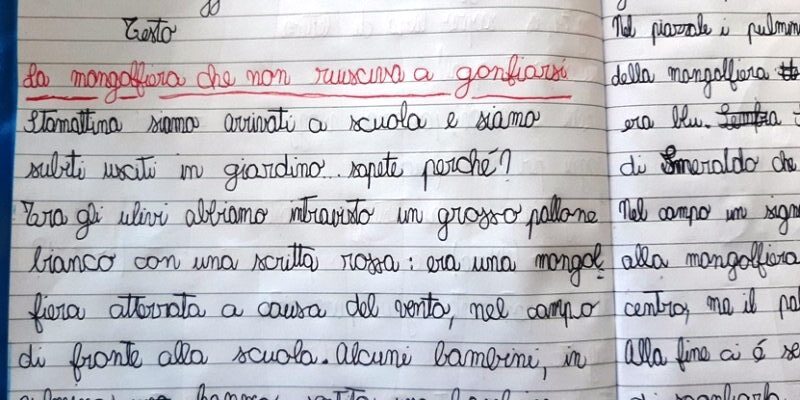 Testo
La mongolfiera che non riusciva a gonfiarsi
Stamattina siamo arrivati a scuola e siamo
subiti usciti in giardino.. sapete perché?
Tra gli ulivi abbiamo intravisto un grosso pallone
bianco con una scritta rossa: era una mongol
fiera atterrata a causa del vento, nel campo
di fronte alla scuola. Alcuni bambini, in
Nel piazzale i pulmin
della mongolfiera
era blu.
di Smeraldo che
Nel campo un sign
alla mongolfiera
centro, ma il pal
Alla fine ci é se
di sgonfiarla